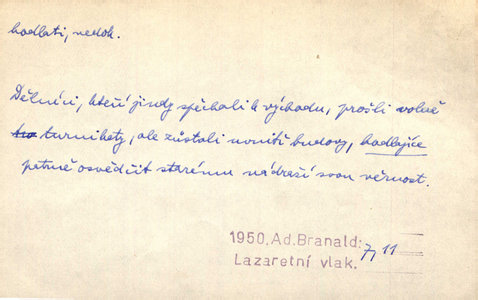 hodlati, nedok.
Dělníci, kteří jindy spěchali k východu, prošli volně
turnikety, ale zůstali uvnitř budovy, hodlajíce
patrně osvědčit starému nádraží svou věrnost.
1950, Ad. Branald:
Lazaretní vlak. 7, 11